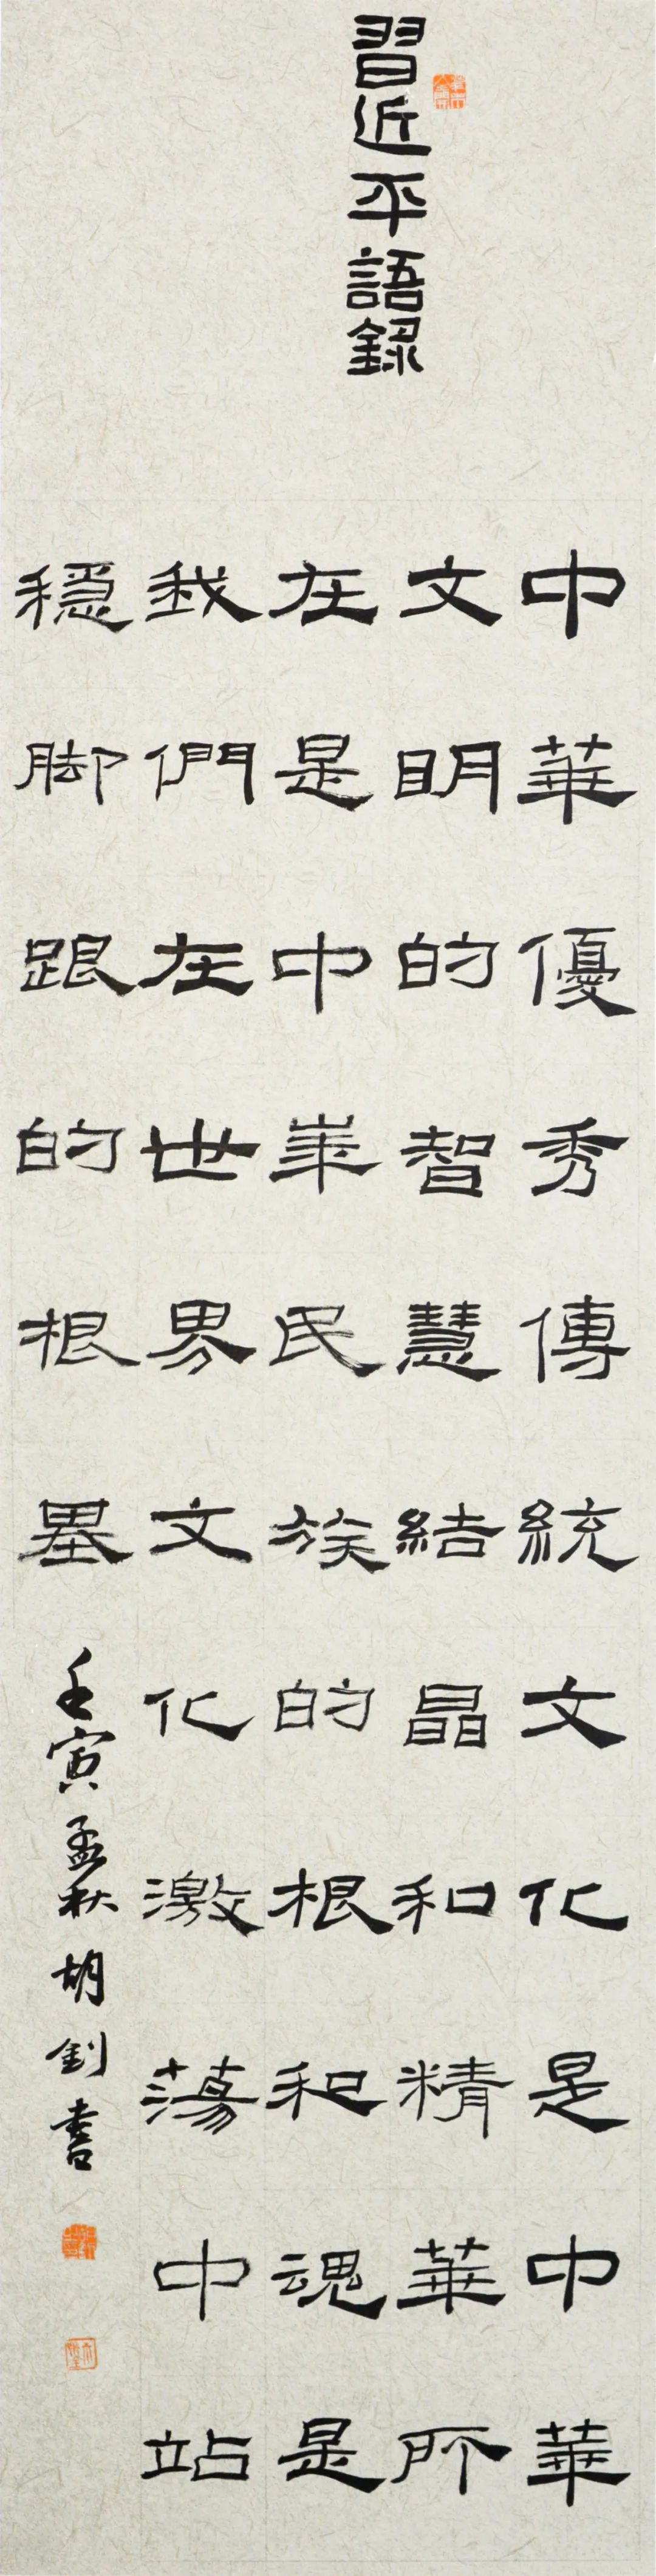 習近平語錄
中華優秀傳統文化是中華
文明的智慧結晶和精華所
在是中華民族的根和魂是
我們在世界文化激蕩中站
穩脚跟的根基
壬寅孟秋胡釗書